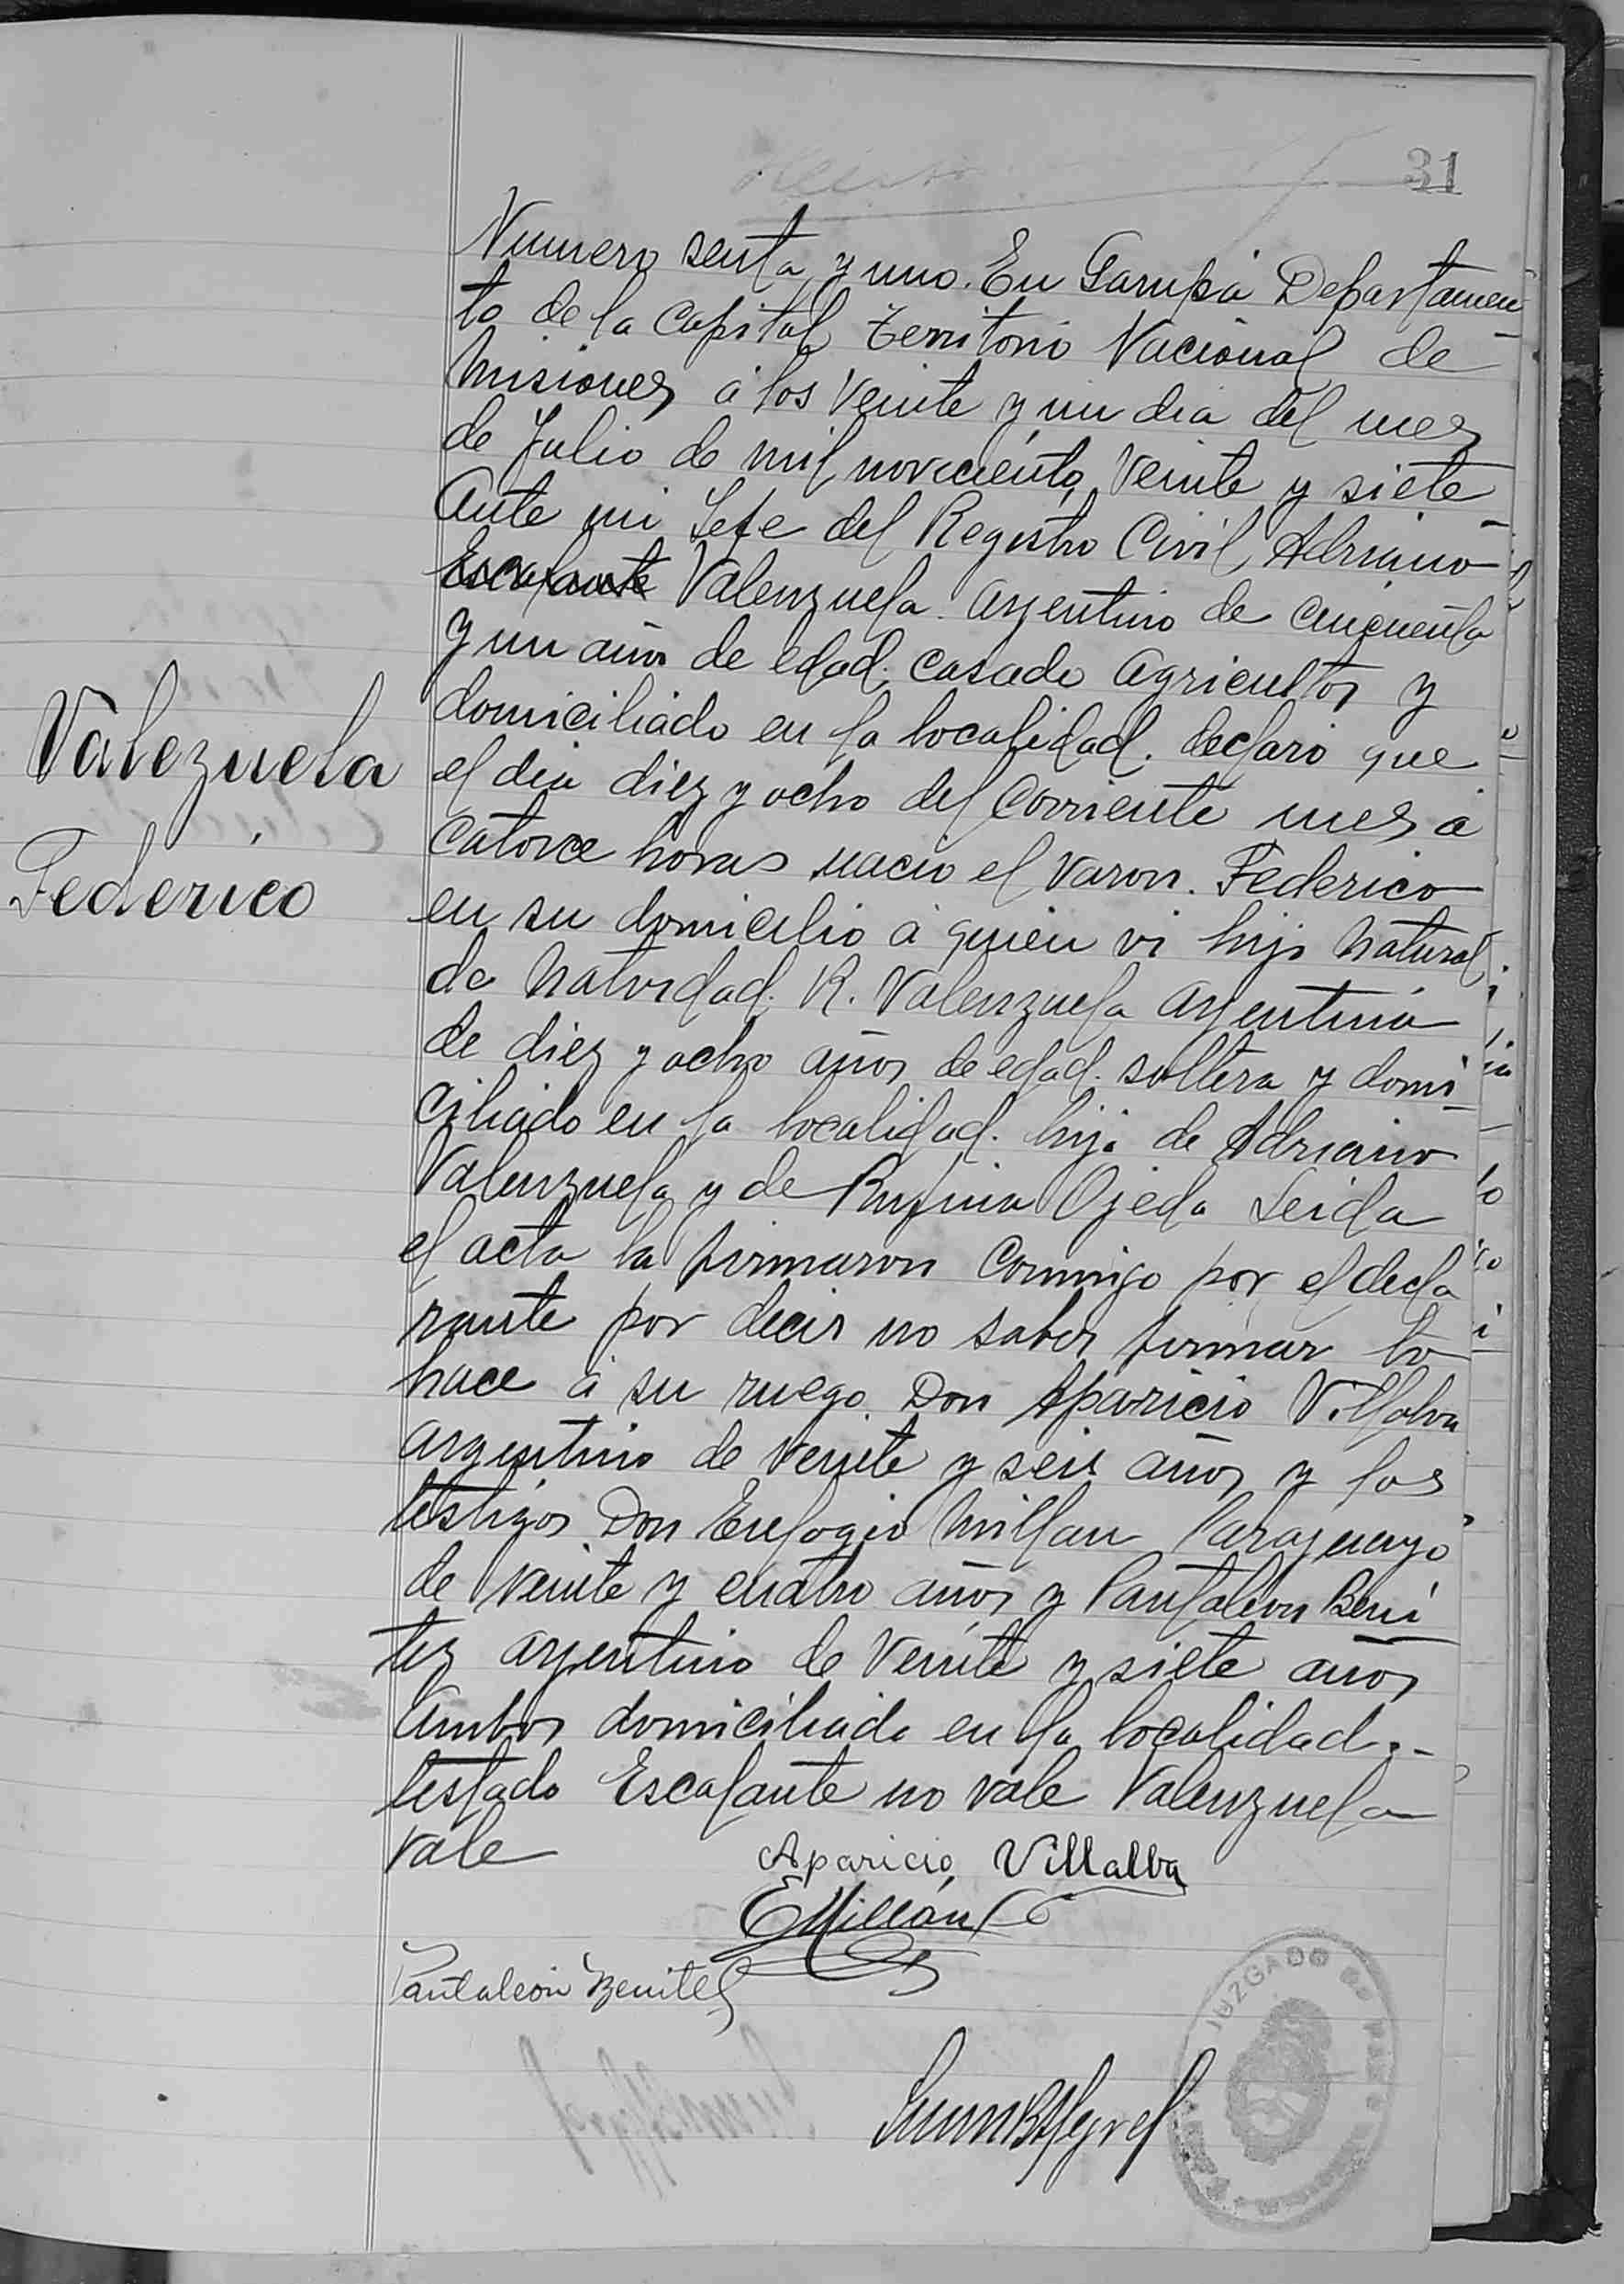 31
Numero senta y uno. En Garupá Departamen
to de la Capital Territorio Nacional de
Misiones á los Veinte y un dia del mes
de Julio de mil novecientos Veinte y siete
Ante mi Jefe del Registro Civil Adriano
Escalante Valenzuela Argentino de cincuenta
y un años de edad. Casado Agricultor y
domiciliado en la localidad. declaro que
el dia diez y ocho del Corriente mes á
Catorce horas nacio el Varon. Federico
en su domicilio á quien vi hijo Natural
de Natividad. R. Valenzuela Argentina
de diez y ocho años de edad. soltera y domi
ciliado en la localidad. hija de Adriano
Valenzuela y de Rufina Ojeda Leida
el acta la firmaron Conmigo por el decla
rante por decir no saber firmar lo
hace á su ruego Don Aparicio Villalva
argentino de Veinte y seis años y los
testigos Don Eulogio Millan Paraguayo
de Veinte y cuatro años y Pantaleon Beni
tez argentino de Veinte y siete años
Ambos domiciliado en la localidad.-
testado Escalante no vale Valenzuela
Vale
Valezuela
Federico
Aparicio Villalba
EMillán
Pantaleón Benitez
JUZGADO DE PAZ